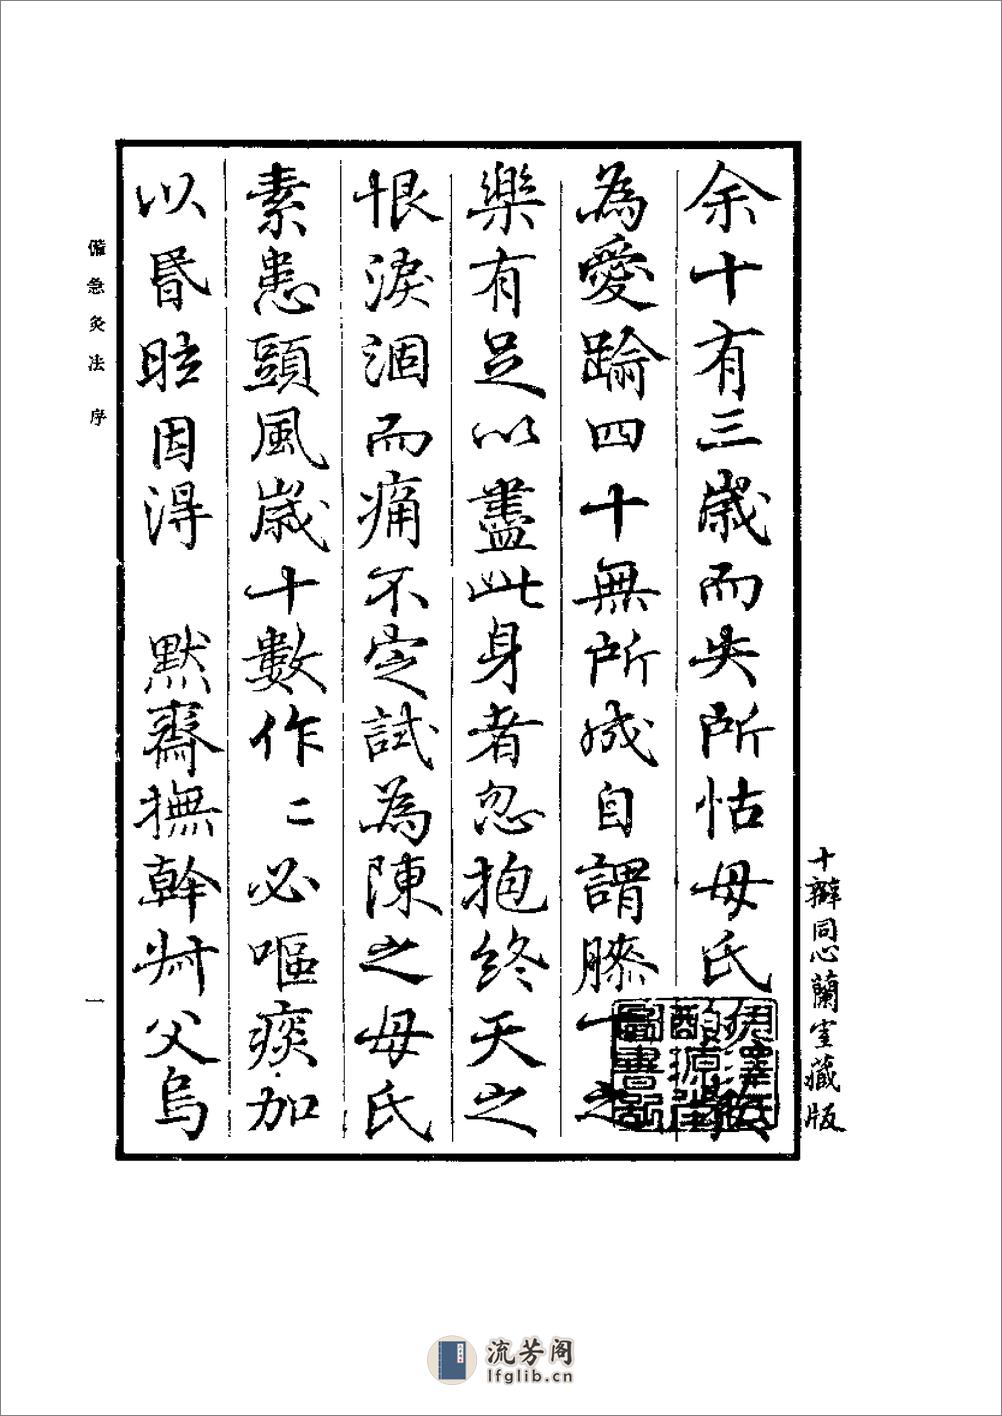 十瓣同心蘭室藏版
余十有三歲而失所怙母氏
為愛踰四十無所成自謂膝下之
樂有足以盡此身者忽抱終天之
恨淚涸而痛不定試為陳之母氏
素患頭風歲十數作二必嘔痰加
以昬眩因得 默齋撫幹叔父烏
備急灸法 序
一
流芳阁
lfglib.cn